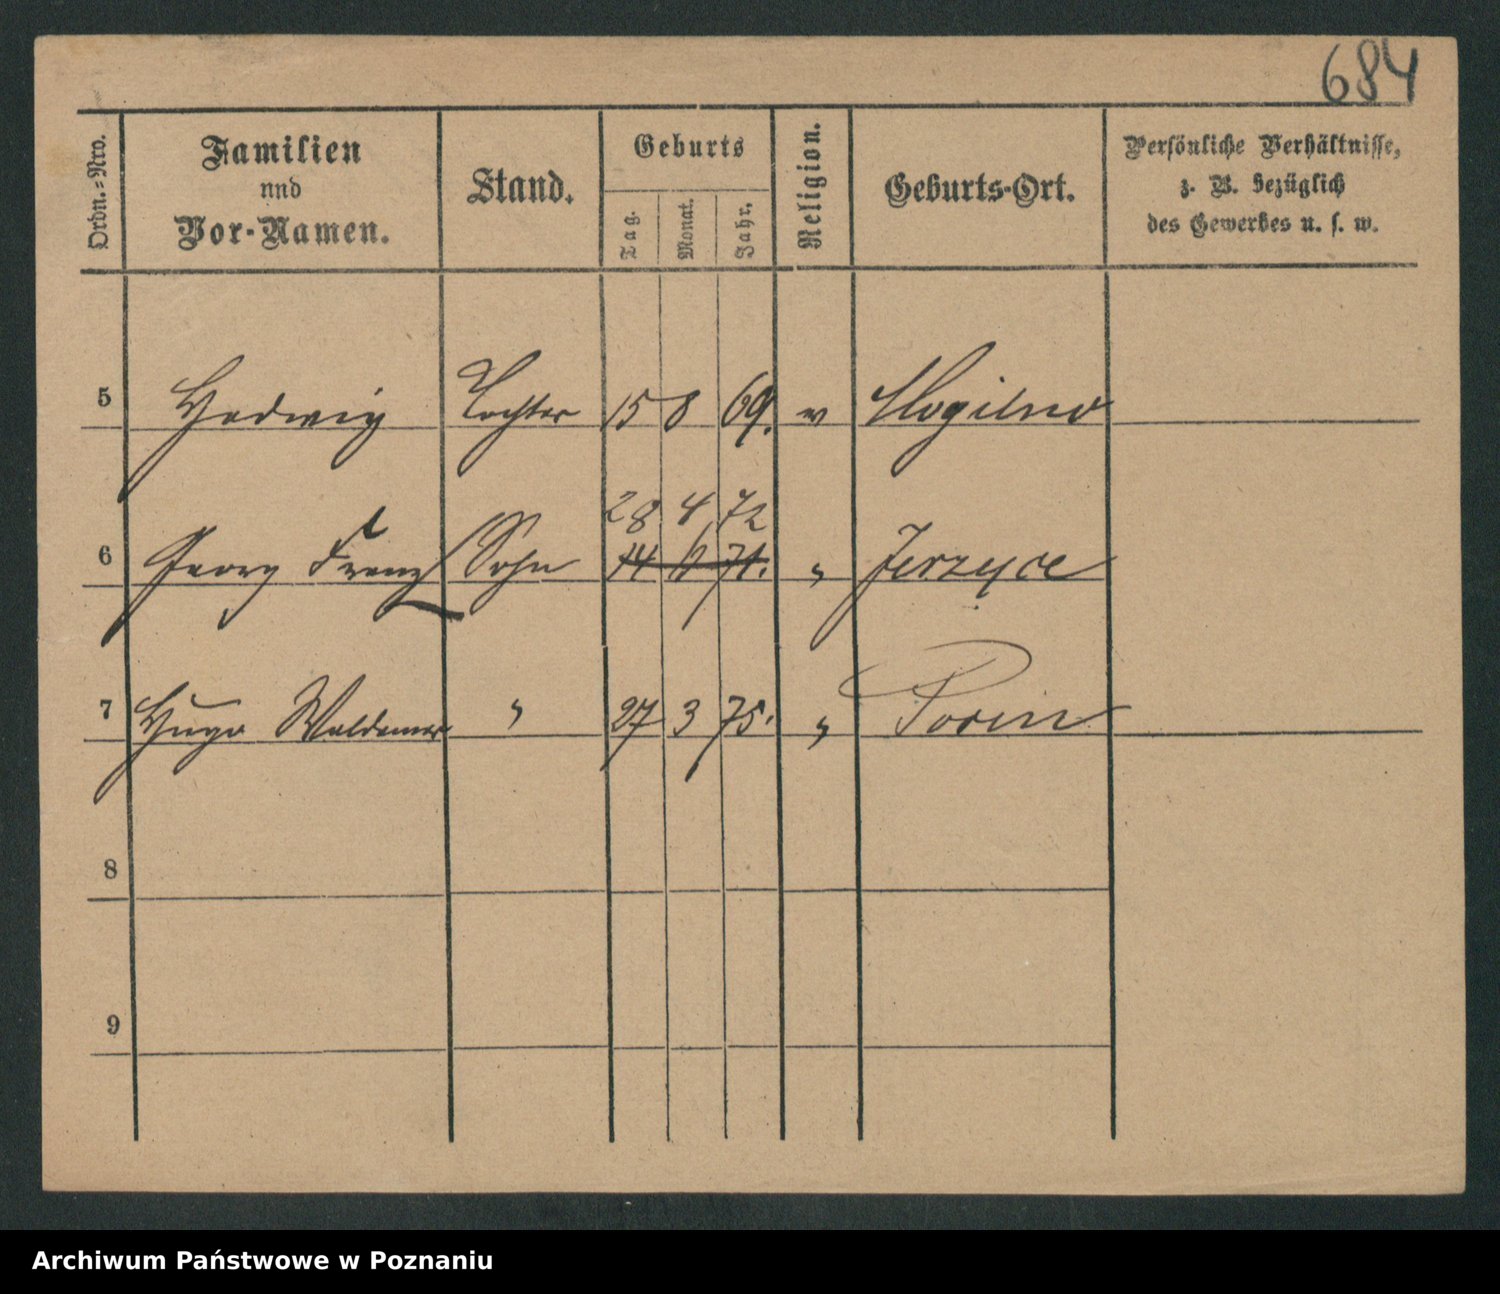 684
Ordn.=Nro. Familien und Vor-Namen. Stand. Geburts Tag. Monat. Jahr. Religion. Geburts-Ort. Persönliche Verhältnisse, z. B. bezüglich des Gewerbes u. s. w.
5 Hedwig Tochter 15 8 69. Mogilno
28 4 72
6 Georg Franz Sohn 14 71. " Jerzyce
7 Hugo Waldemar " 27 3 75. " Posen
8
9
Archiwum Państwowe w Poznaniu